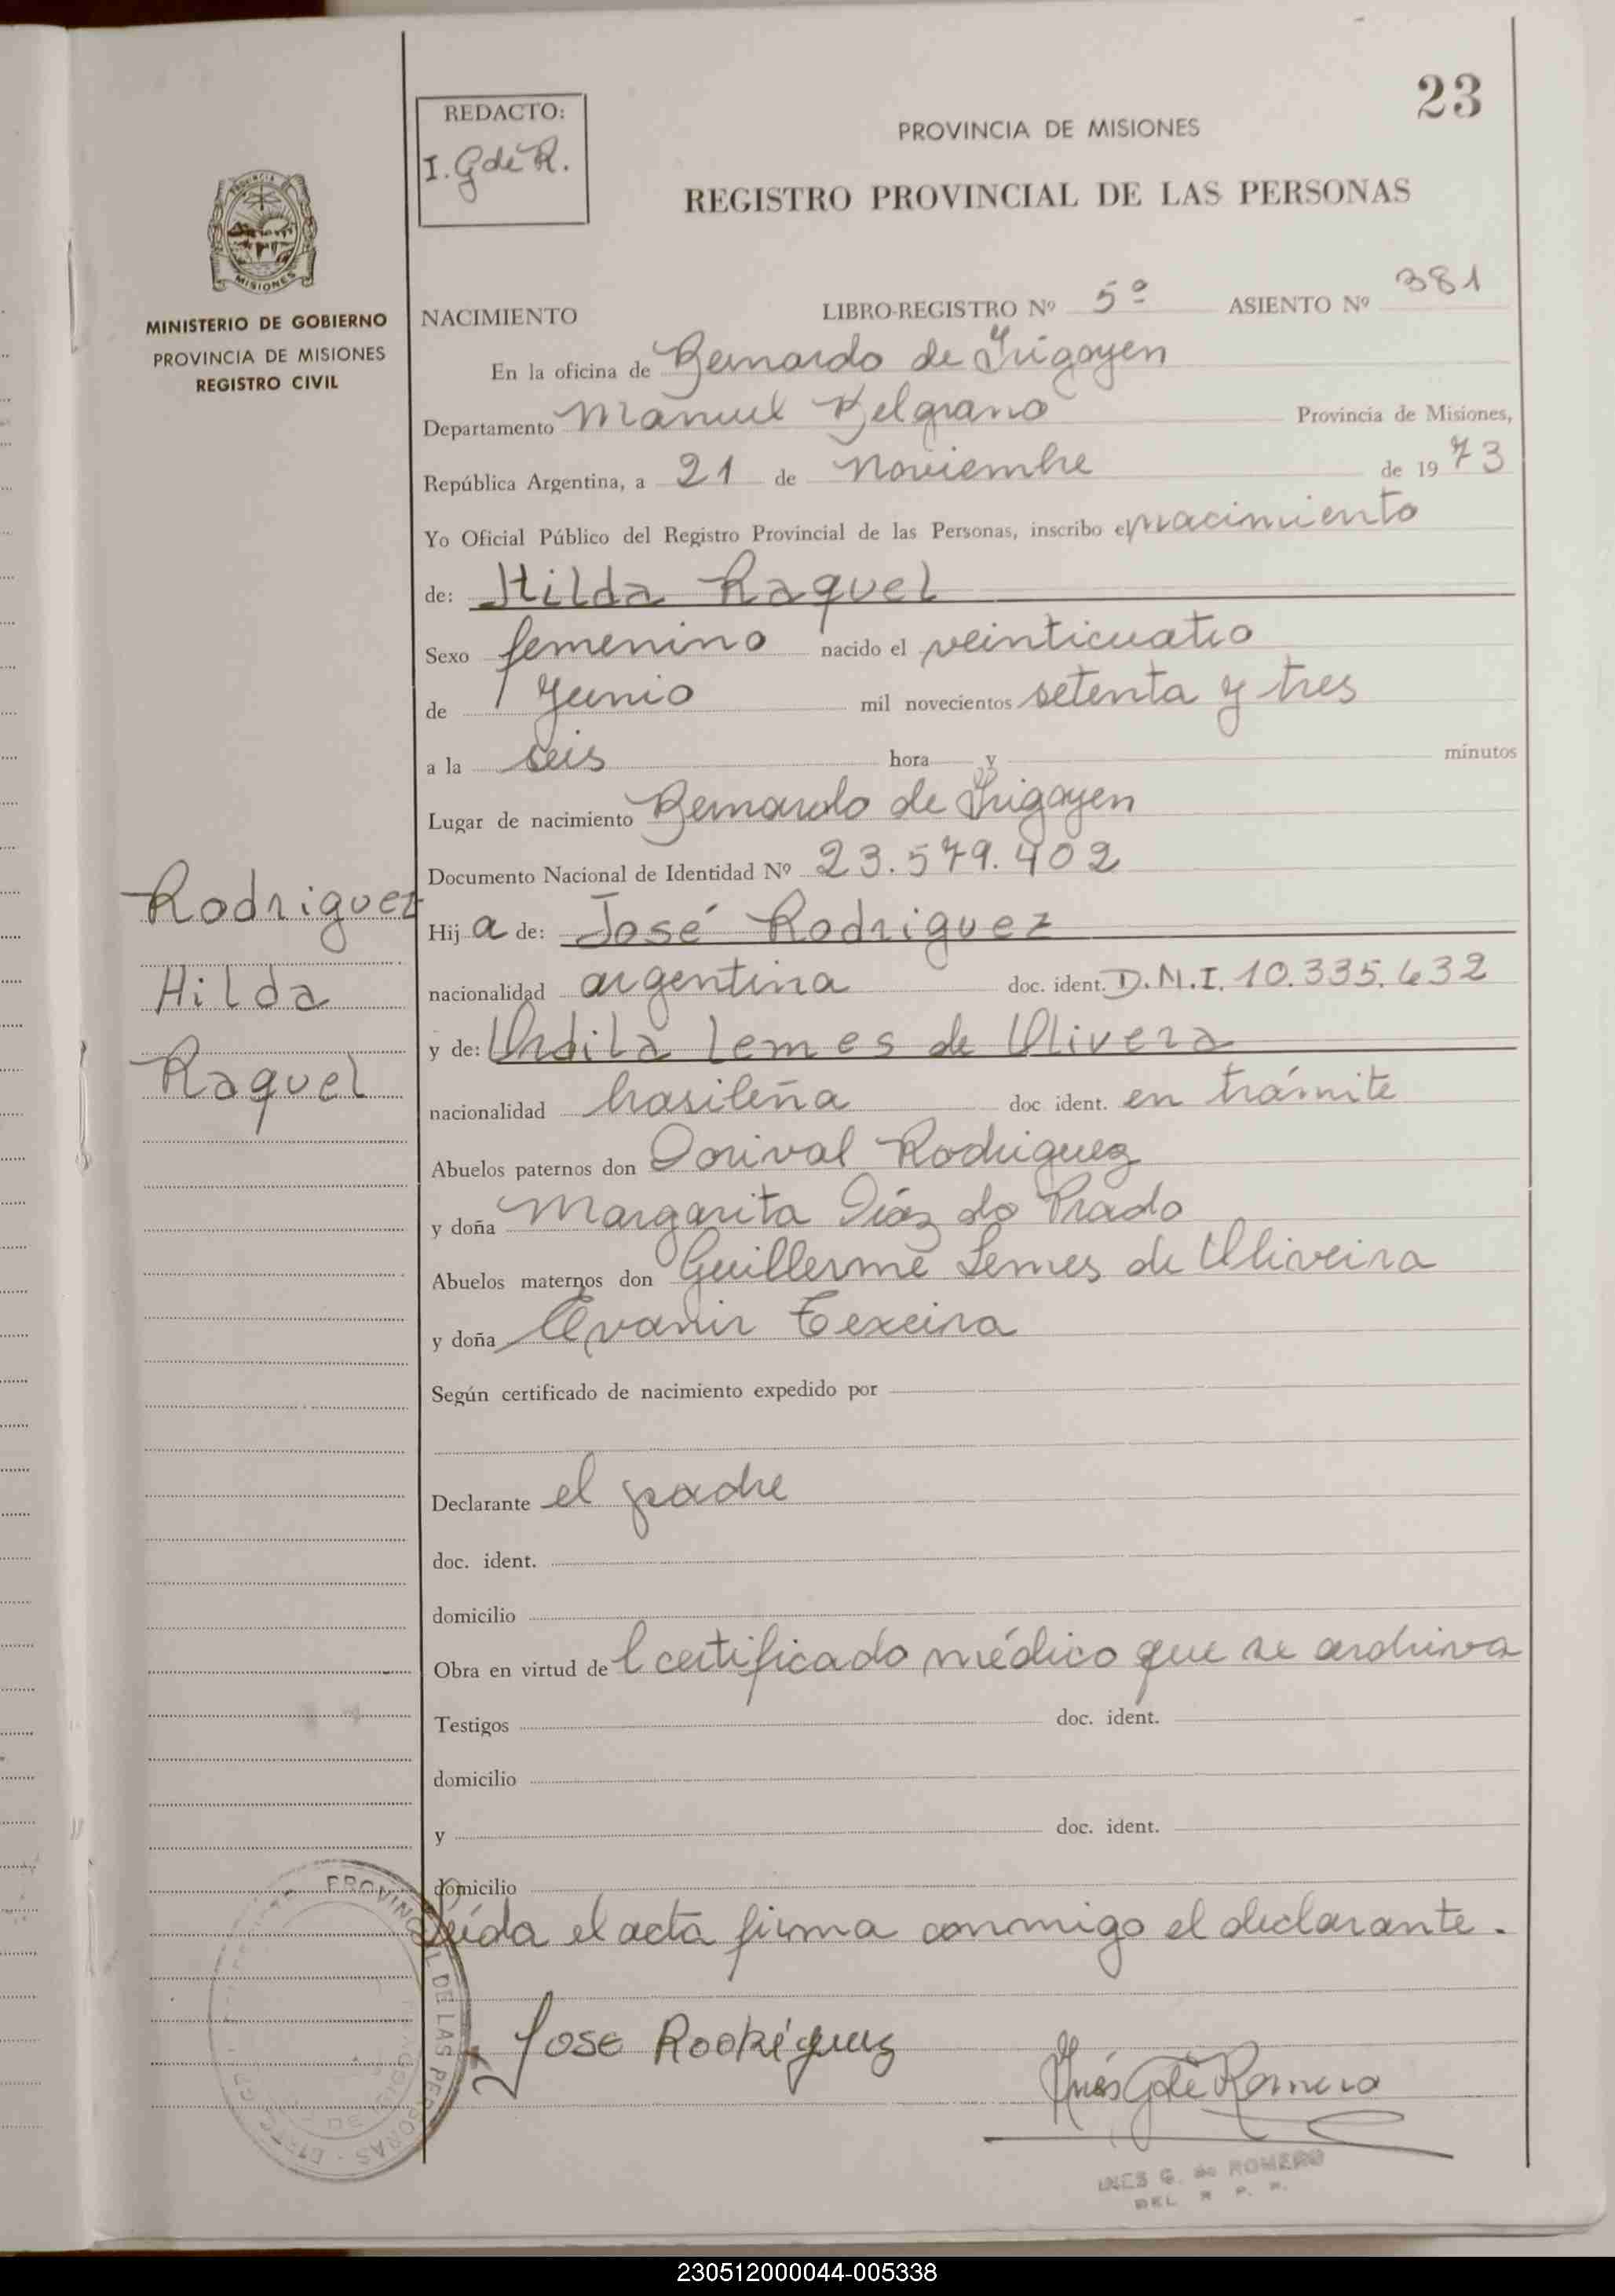 23
REDACTO:
I. G de R.
PROVINCIA DE MISIONES
REGISTRO PROVINCIAL DE LAS PERSONAS
MISIONES
MINISTERIO DE GOBIERNO
PROVINCIA DE MISIONES
REGISTRO CIVIL
NACIMIENTO LIBRO-REGISTRO Nº 5º ASIENTO Nº 381
En la oficina de Bernardo de Irigoyen
Departamento Manuel Belgrano Provincia de Misiones,
República Argentina, a 21 de noviembre de 1973
Yo Oficial Público del Registro Provincial de las Personas, inscribo el nacimiento
de: Hilda Raquel
Sexo femenino nacido el veinticuatro
de Junio mil novecientos setenta y tres
a la seis hora y minutos
Lugar de nacimiento Bernardo de Irigoyen
Documento Nacional de Identidad Nº 23.579.402
Rodriguez
Hilda
Raquel
Hija de: José Rodriguez
nacionalidad argentina doc. ident. D.N.I. 10.335.632
y de: Lemes de Olivera
nacionalidad brasileña doc ident. en trámite
Abuelos paternos don Dorival Rodriguez
y doña Margarita Diáz do Prado
Abuelos maternos don Guillerme Lemes de Oliveira
y doña Texeira
Según certificado de nacimiento expedido por
Declarante el padre
doc. ident.
domicilio
Obra en virtud del certificado médico que se archiva
Testigos doc. ident.
domicilio
y doc. ident.
domicilio
Leída el acta firma conmigo el declarante.
PROVINCIAL DE LAS PERSONAS
Jose Rodriguez
Inés G de Romero
INES G. de ROMERO
DEL R. P. P.
230512000044-005338